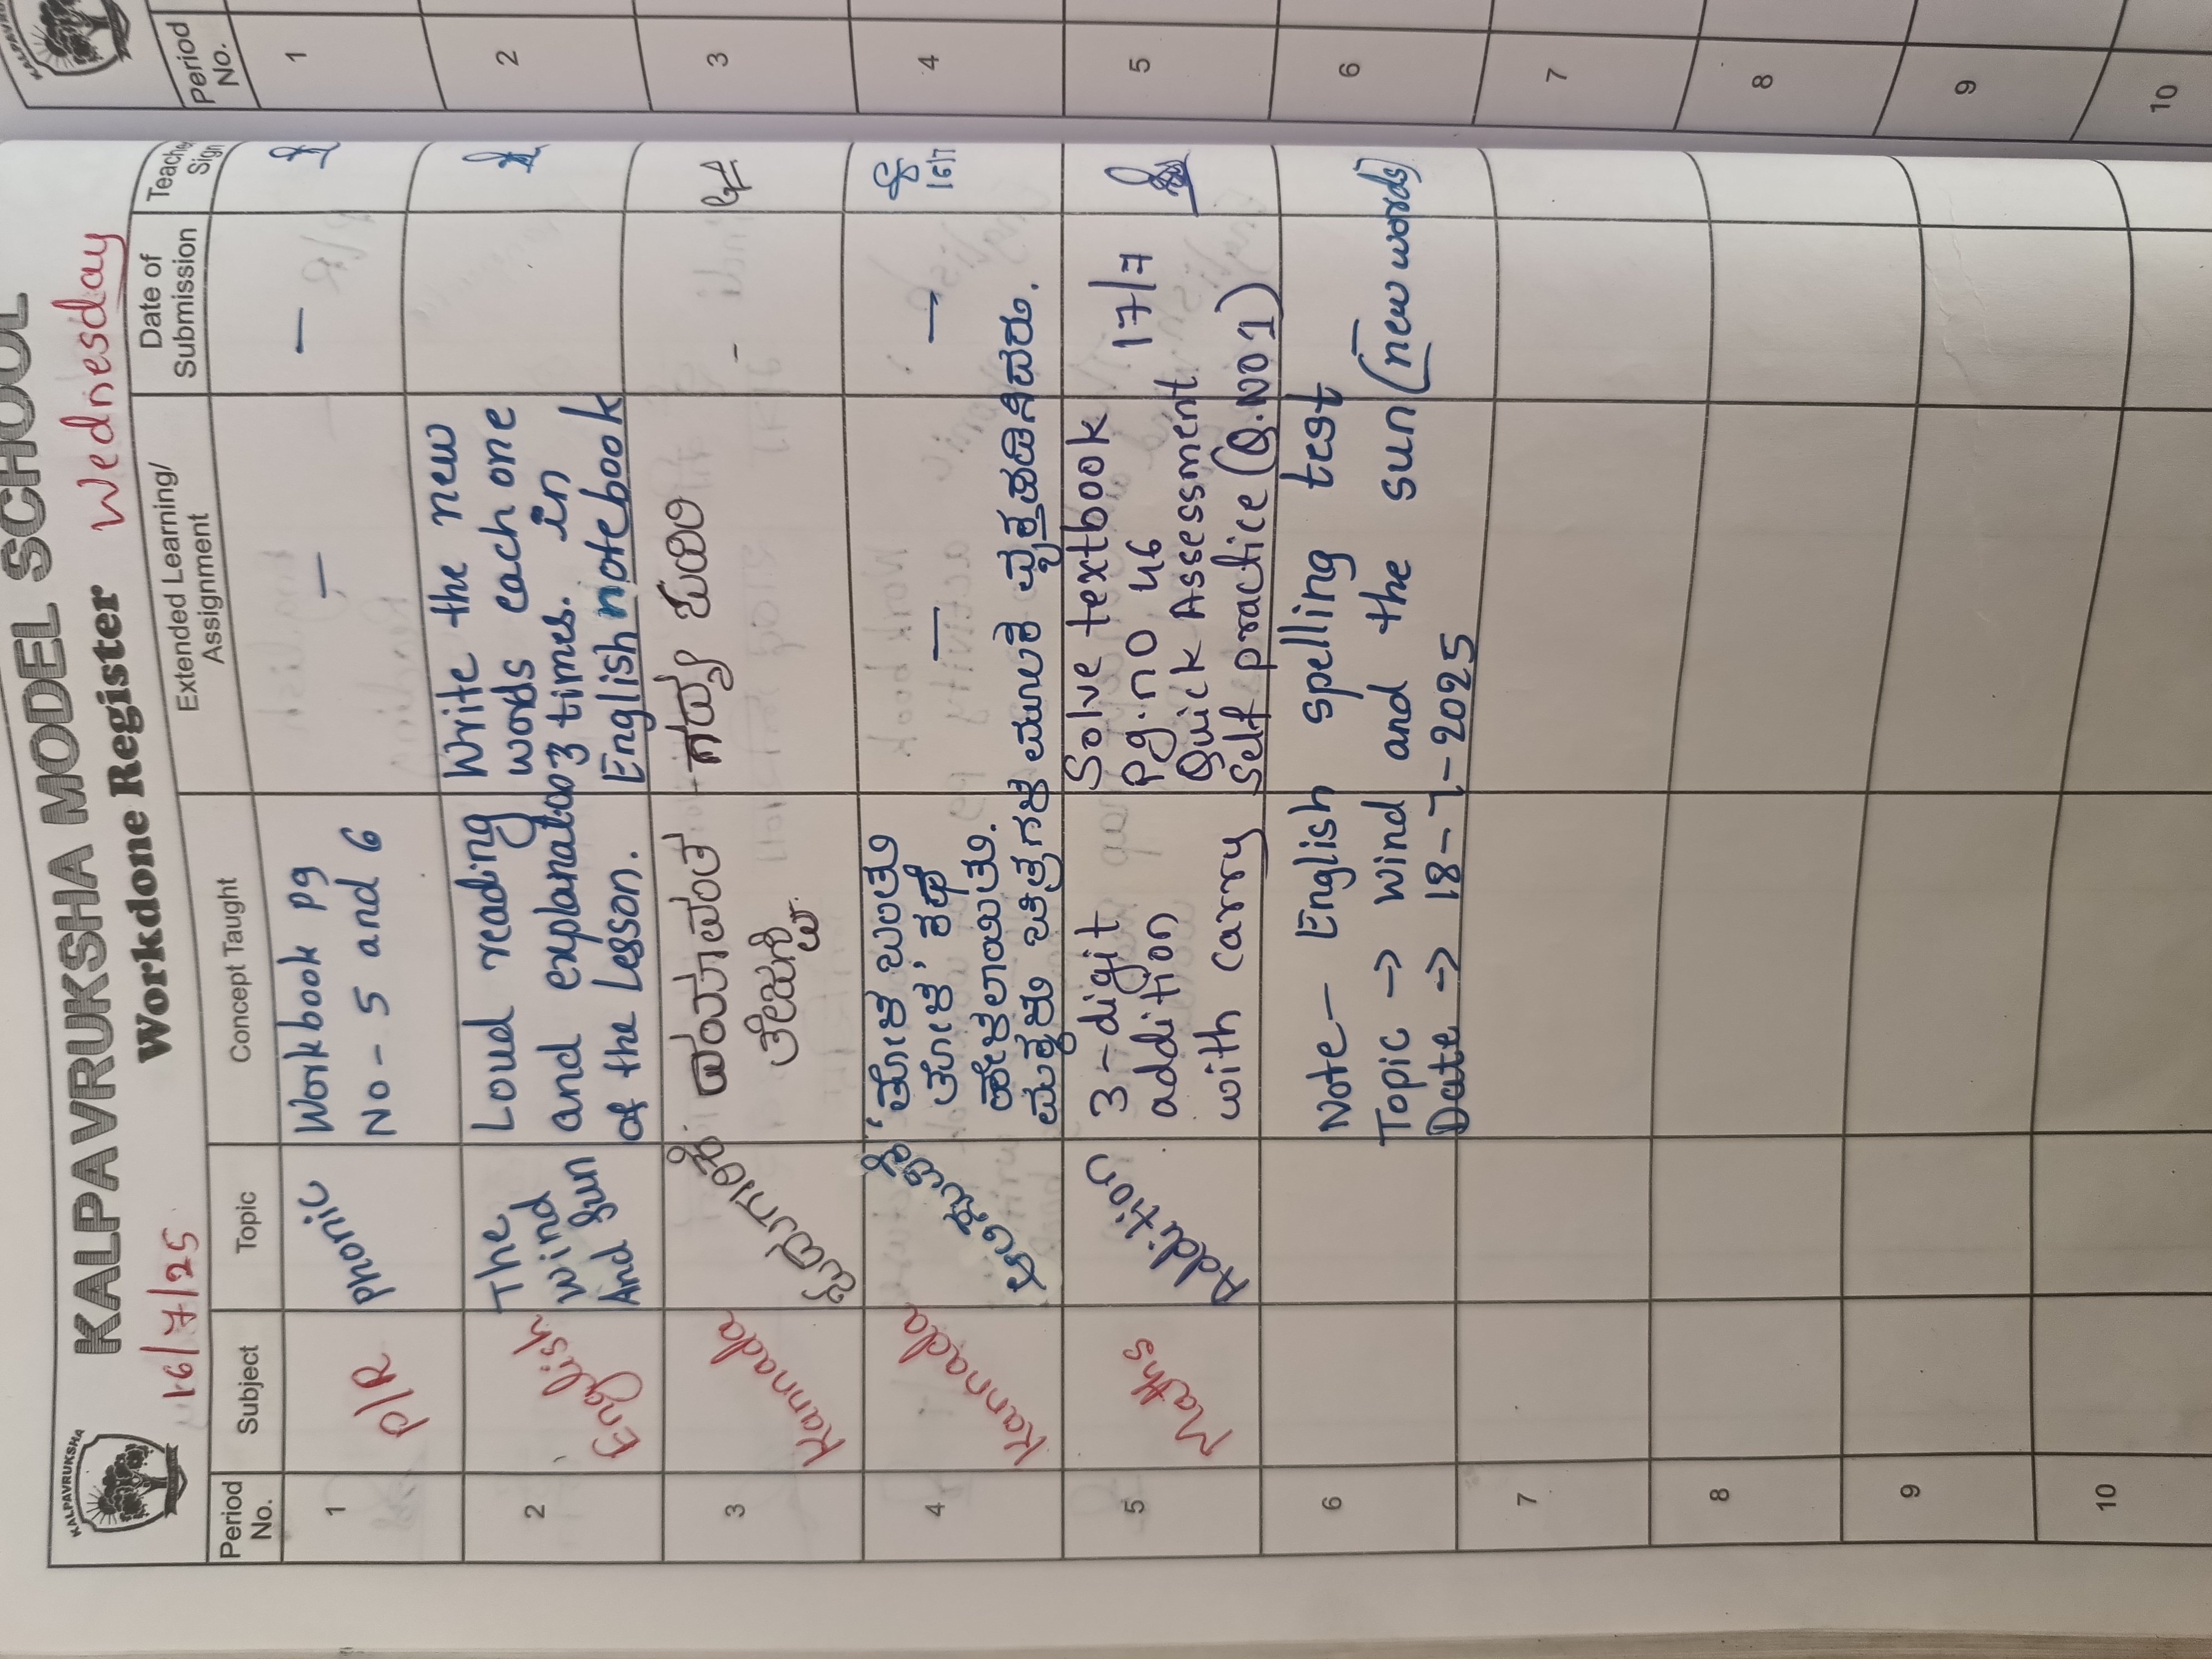 KALPAVRUKSHA
KALPAVRUKSHA MODEL SCHOOL
Workdone Register
16/7/25
Wednesday
Period No.
Subject
Topic
Concept Taught
Extended Learning/ Assignment
Date of Submission
Teacher Sign
1
P/R
phonic
Workbook pg
No - 5 and 6
—
—
2
English
The
wind
And Sun
Loud reading
and explanation
of the Lesson.
Write the new
words each one
3 times. in
English notebook
3
Kannada
ಗದ್ಯ ಓದಿರಿ
-
4
Kannada
'ತೋಳ ಬಂತು
ತೋಳ' ಕಥೆ
ಹೇಳಲಾಯಿತು.
ಮತ್ತು ಚಿತ್ರಗಳ ಮೂಲಕ
—
—
16/7
5
Maths
Addition
3-digit
addition
with carry
Solve textbook
Pg.no 46
Quick Assessment
Self practice (Q.NO1)
17/7
6
Note - English spelling test
Topic → wind and the sun (new words)
Date → 18-7-2025
7
8
9
10
KALPAVRUKSHA
Period No.
1
2
3
4
5
6
7
8
9
10